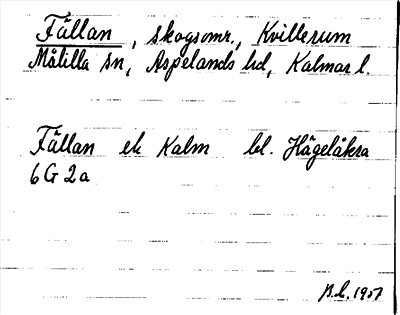 Fällan, skogsomr., Kvillerum
Målilla sn, Aspelands hd, Kalmar l.
Fällan ek Kalm bl. Hägelåkra
6 G 2 a